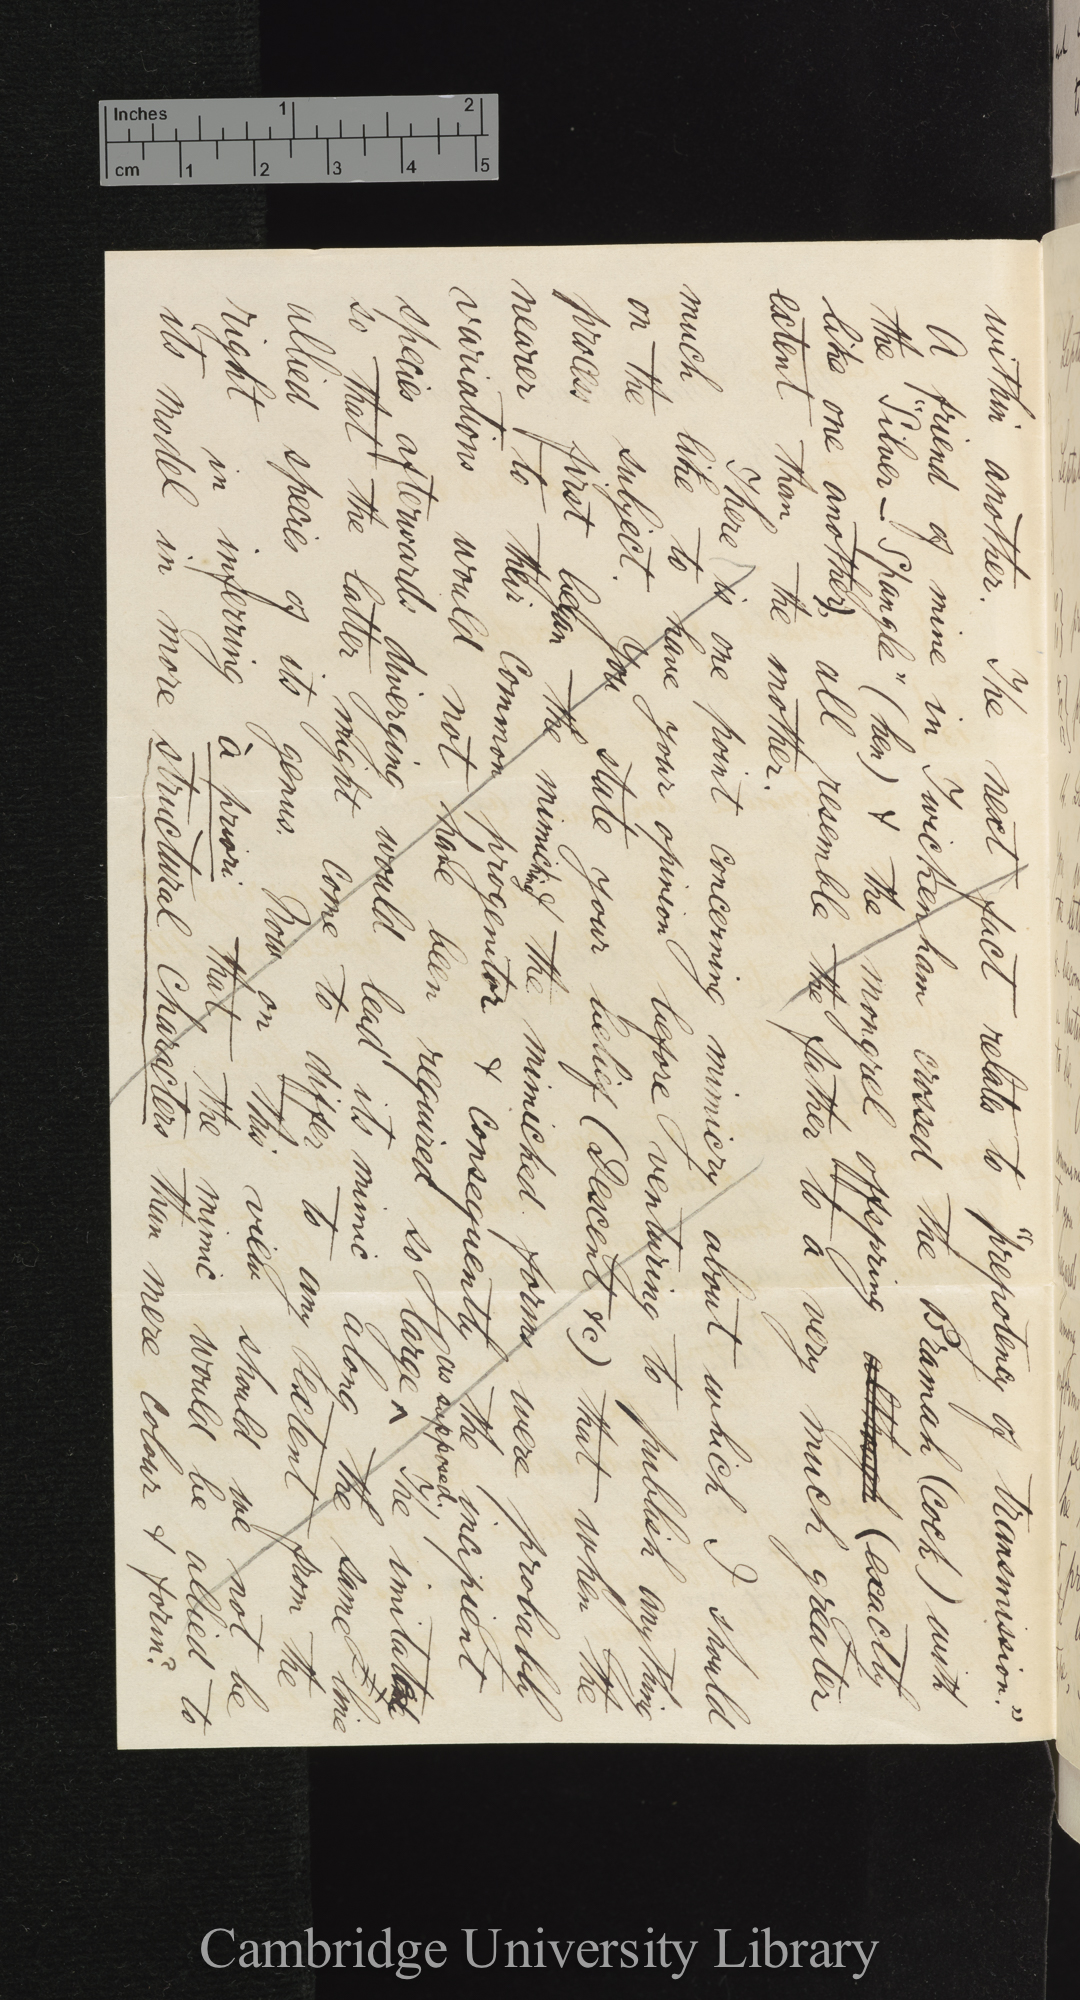 Inches 1 2
cm 1 2 3 4 5
within another. The next fact relates to "prepotency of transmission."
A friend of mine in Twickenham crossed the Bramah (cock) with
the "Silver-Spangle" (hen) & the mongrel offspring (exactly
like one another), all resemble the father to a very much greater
extent than the mother.
There is one point concerning mimicry about which I should
much like to have your opinion before venturing to publish anything
on the subject. You state your belief (Descent &c) that when the
process first began the mimicking & the mimicked forms were probably
nearer to their common progenitor & consequently the incipient
variations would not have been required so large ^ as supposed. The imitated
species afterwards diverging would lead its mimic along the same line
so that the latter might come to differ to any extent from the
allied species of its genus. Now on this view should we not be
right in inferring à priori that the mimic would be allied to
its model in more structural characters than mere colour & form?
Cambridge University Library